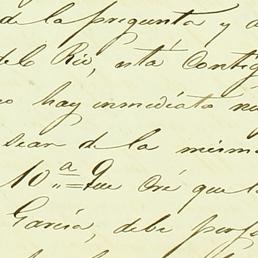 de la pregunta y a
del Rio, está contig
no hay inmediato n
sean de la misma
10ª Que Oré que l
García, debe perf